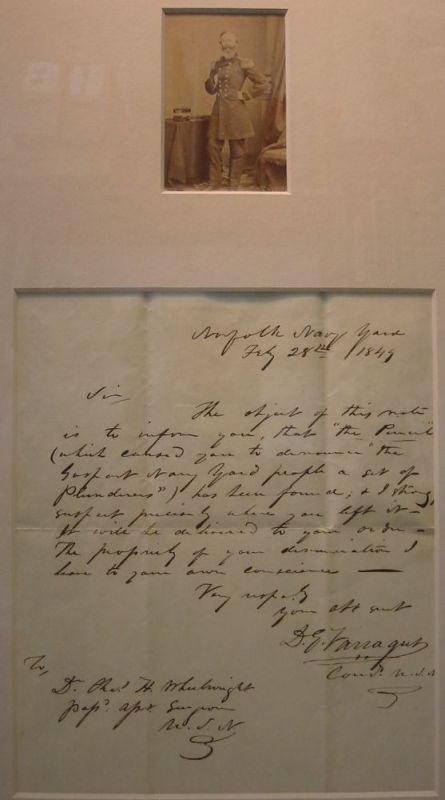 Norfolk Navy Yard
Feby 28th 1849
Sir
The object of this note
is to inform you, that "the Pencil"
(which caused you to denounce "the
Gosport Navy Yard people a set of
Plunderers") has been found; & I strongly
suspect precisely where you left it —
It will be delivered to your order —
The propriety of your denunciation I
leave to your own conscience —
Very respcly
your obt sevt
D. G. Farragut
Comdr U.S.N
To,
Dr. Chas. H. Wheelwright
passd. asst. Surgeon
U.S.N